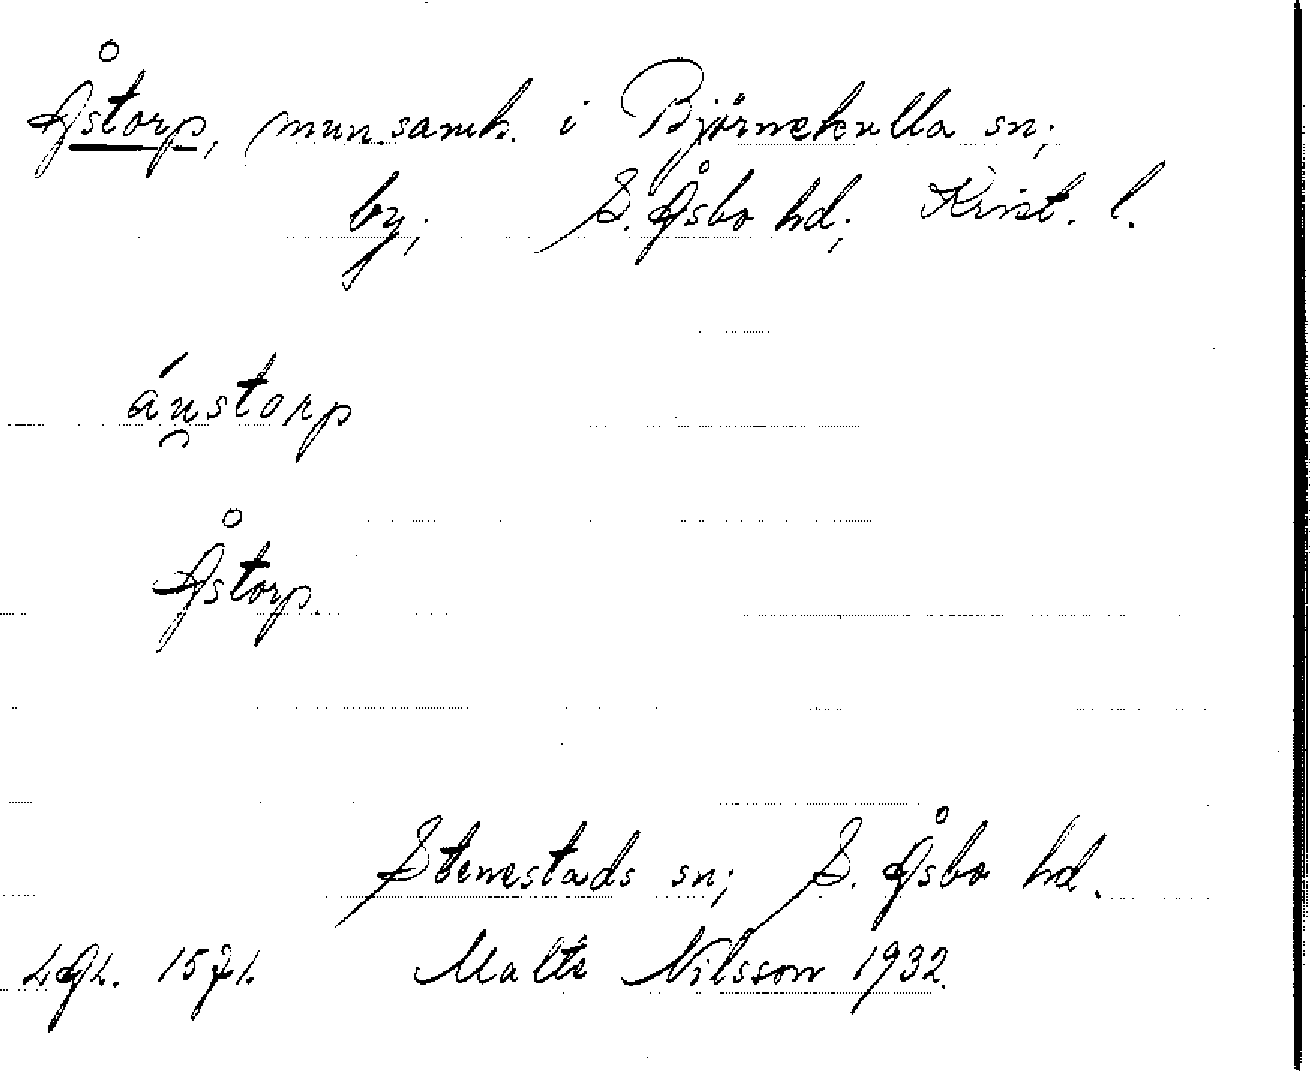 Åstorp, mun.samh. i Björnekulla sn;
by; S. Åsbo hd; Krist. l.
áu̯storp
Åstorp.
Stenestads sn; S. Åsbo hd.
Malte Nilsson 1932.